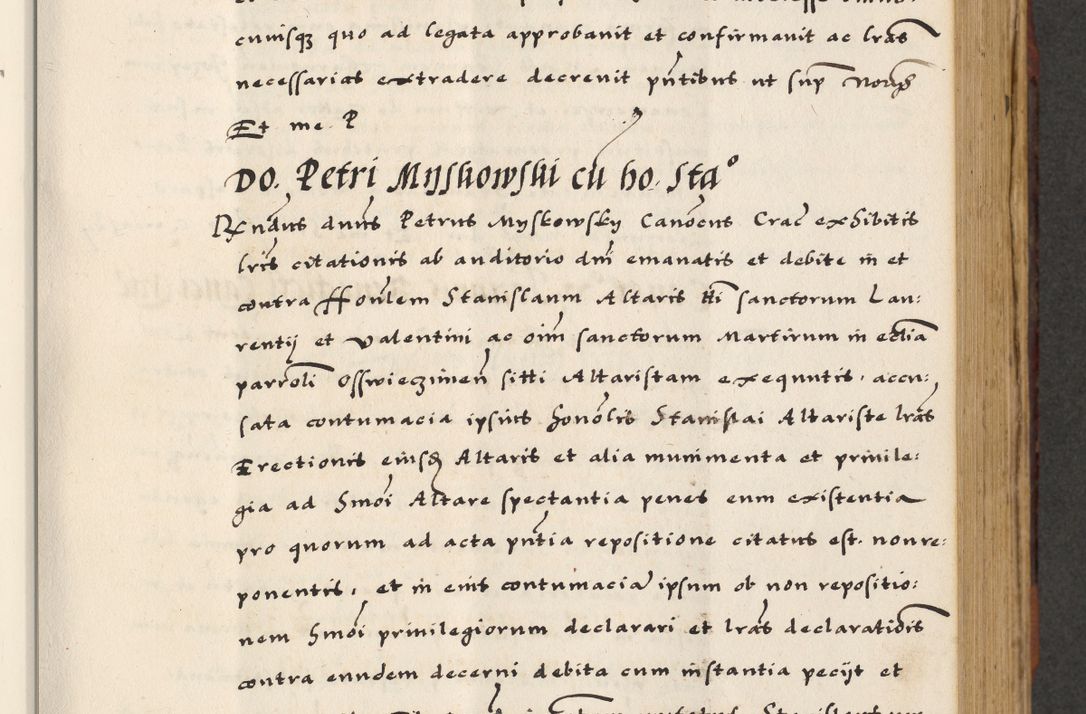 cuiusqz quo ad legata approbavit et confirmavit ac lras
necessarias extradere decrevit pntibus ut sup
Et me P
DO. Petri Myskowski cu ho. Sta°
Rndus dnus Petrus Myskowsky Canocus Crac exhibitis
lris citationis ab auditorio dni emanatis et debite in et
contra Honlem Stanislaum Altaris tti sanctorum Lau:
rentij et Valentini ac oim sanctorum Martirum in eclia
parroli Osswieczimen sitti Altaristam exequutis, accu:
sata contumacia ipsius honolis Stanislai Altariste lras
Erectionis eiusdz Altaris et alia munimenta et privile:
gia ad Smoi Altare spectantia penes eum existentia
pro quorum ad acta pntia repositione citatus est. non re:
ponentis, et in eius contumacia ipsum ob non repositio:
nem Smoi privilegiorum declarari et lras declaratiois
contra eundem decerni debita cum instantia pecijt et